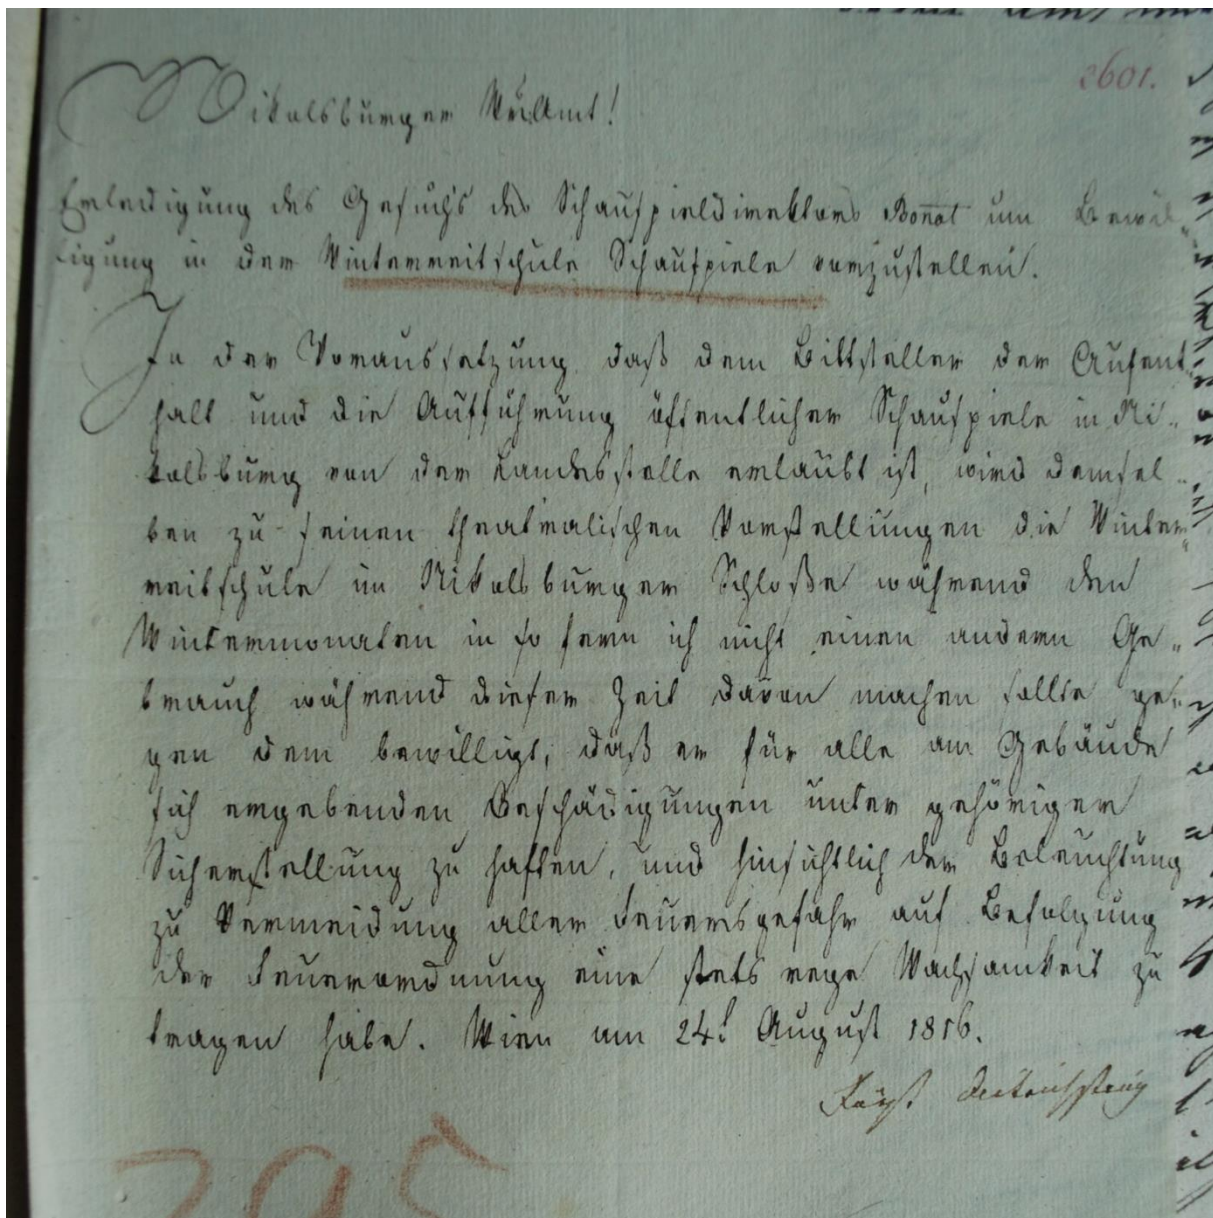 2601.
Nikolsburger Amt!
Erledigung des Gesuchs des Schauspieldirektors Bonnot um Bewil„
ligung in der Winterreitschule Schauspiele vorzustellen.
In der Voraussetzung daß dem Bittsteller der Aufent„
halt und die Aufführung öffentlicher Schauspiele in Ni„
kolsburg von der Landesstelle erlaubt ist, wird demsel„
ben zu seinen theatralischen Vorstellungen die Winter„
reitschule im Nikolsburger Schloße während den
Wintermonaten in so fern ich nicht einen andern Ge„
brauch während dieser Zeit davon machen sollte ge„
gen dem bewilligt, daß er für alle am Gebäude
sich ergebenden Beschädigungen unter gehöriger
Sicherstellung zu haften, und hinsichtlich der Beleuchtung
zu Vermeidung aller Feuersgefahr auf Befolgung
der Feuerordnung eine stets rege Wachsamkeit zu
tragen habe. Wien am 24t August 1816.
Fürst Dietrichstein